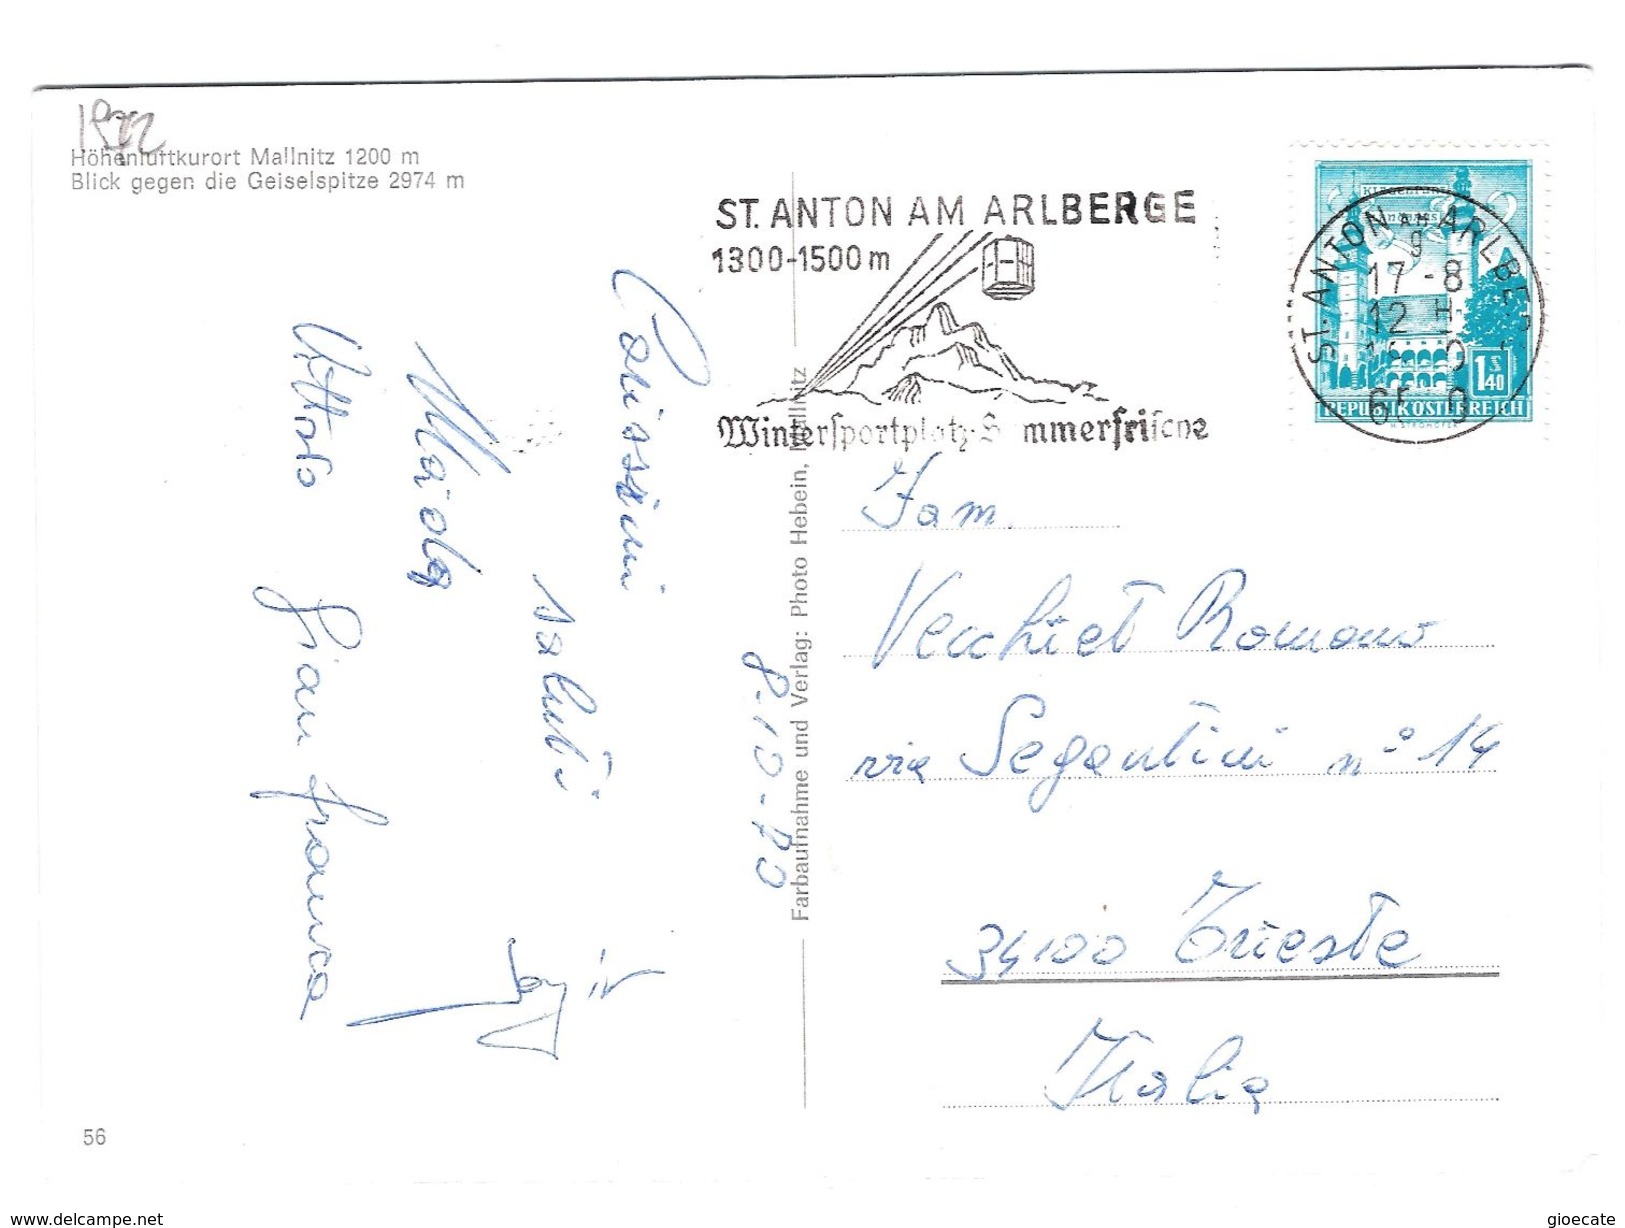 1972
Höhenluftkurort Mallnitz 1200 m
Blick gegen die Geiselspitze 2974 m
ST. ANTON AM ARLBERGE
1300-1500 m
Wintersportplatz-S mmerfrische
Klagenfurt
ST. ANTON AM ARLBE
9
17 -8
12 H
REPUBLIK ÖSTERREICH
1 S 40
Farbaufnahme und Verlag: Photo Hebein, Mallnitz
8-10-70
Carissimi
saluti
Maiola
Vittorio Gian franca
Fam.
Vecchiet Romano
via Segantini n° 14
34100 Trieste
Italia
56
www.delcampe.net
gioecate